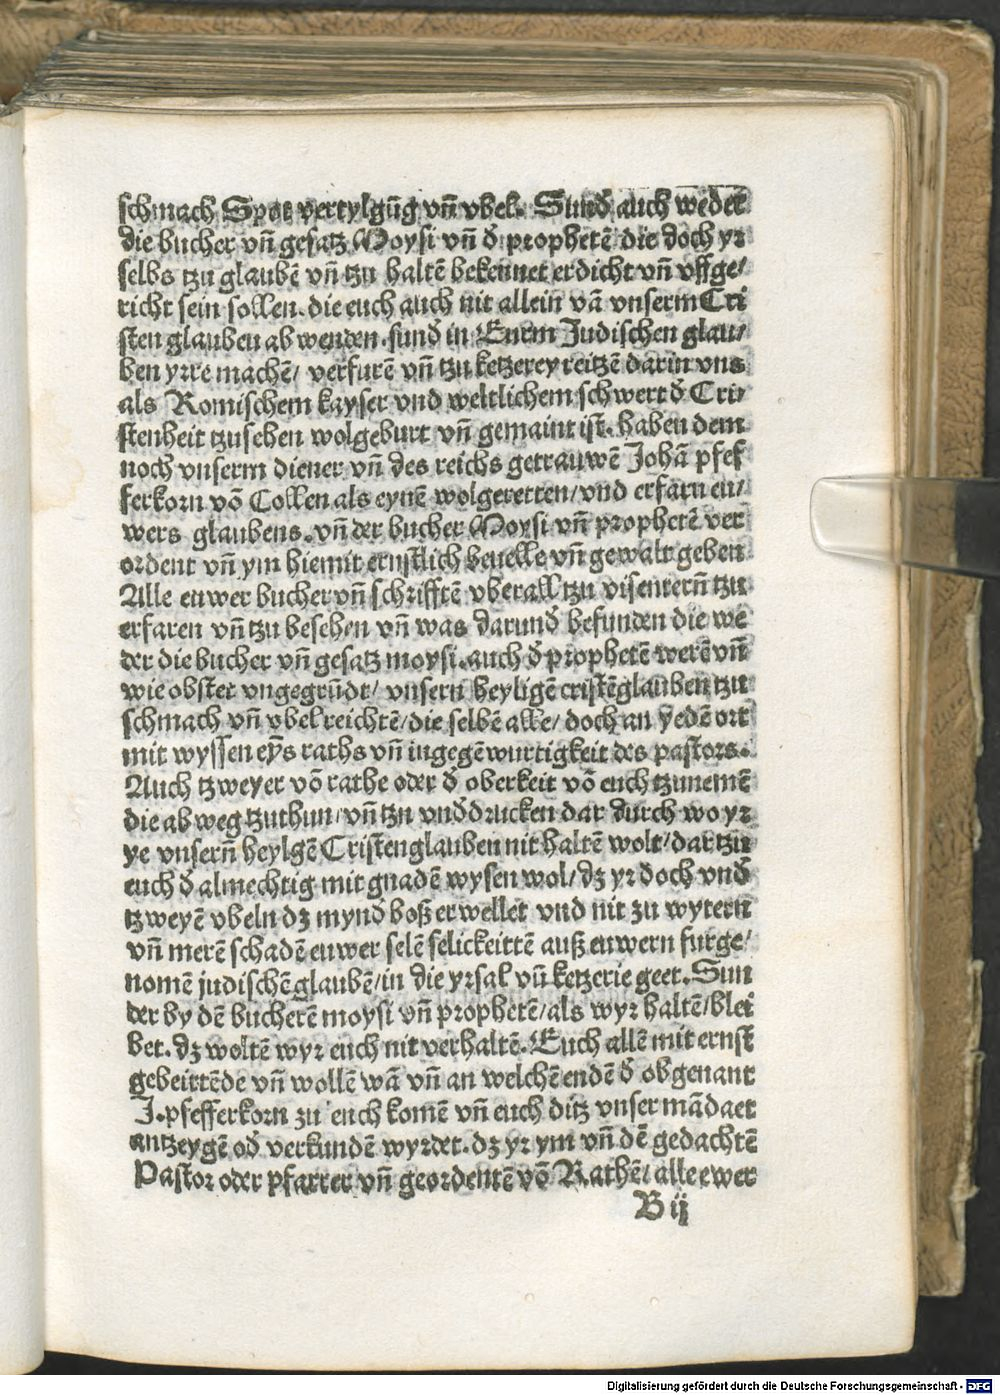 schmach Spot vertylgūg vñ vbel. Sund̄ auch weder
die bucher vñ gesatz Moysi vñ d̄ prophetē die doch yr
selbs tzu glaubē vñ tzu haltē bekennet erdicht vñ vffge/
richt sein sollen. die euch auch nit allein vā vnserm Cri
sten glauben ab wenden. sund̄ in Eurm Judischen glau/
ben yrre machē/ verfurē vñ tzu ketzerey reitzē darin vns
als Romischem kayser vnd weltlichem schwert d̄ Cri/
stenheit tzusehen wolgeburt vñ gemaint ist. haben dem
noch vnserm diener vñ des reichs getrauwē Johā pfef
ferkorn vō Collen als eynē wolgeretten/vnd erfarn eu/
wers glaubens. vñ der bucher Moysi vñ prophetē ver
ordent vñ ym hiemit ernstlich beuelle vñ gewalt geben
Alle euwer bucher vñ schrifftē vberall tzu visentern̄ tzu
erfaren vñ tzu besehen vñ was darund̄ befunden die we
der die bucher vñ gesatz moysi. auch d̄ prophetē werē vñ
wie obstet vngegrūdt/ vnsern heyligē cristēglauben tzu
schmach vñ vbel reichtē/die selbē alle/ doch an yedē ort
mit wyssen eȳs raths vñ ingegēwurtigkeit des pastors.
Auch tzweyer vō rathe oder d̄ oberkeit vō euch tzunemē
die ab weg tzuthun/vñ tzu vnd̄drucken dar durch wo yr
ye vnsern̄ heylgē Cristenglauben nit haltē wolt/dar tzu
euch d̄ almechtig mit gnadē wysen wol/dz yr doch vnd̄
tzweyē vbeln dz mynd̄ boß erwellet vnd nit zu wytern
vñ merē schadē euwer selē selickeittē auß euwern furge/
nomē judischē glaubē/in die yrsal vñ ketzerie geet. Sun
der by dē bucherē moysi vñ prophetē/als wyr haltē/blei
bet. dz woltē wyr euch nit verhaltē. Euch allē mit ernst
gebeittēde vñ wollē wā vñ an welchē endē d̄ obgenant
J. pfefferkorn zu euch komē vñ euch ditz vnser mādaet
antzeygē od̄ verkundē wyrdet. dz yr ym vñ dē gedachtē
Pastor oder pfarrer vñ geordentē vō Rathē/ alle ewer
B ij
Digitalisierung gefördert durch die Deutsche Forschungsgemeinschaft - DFG